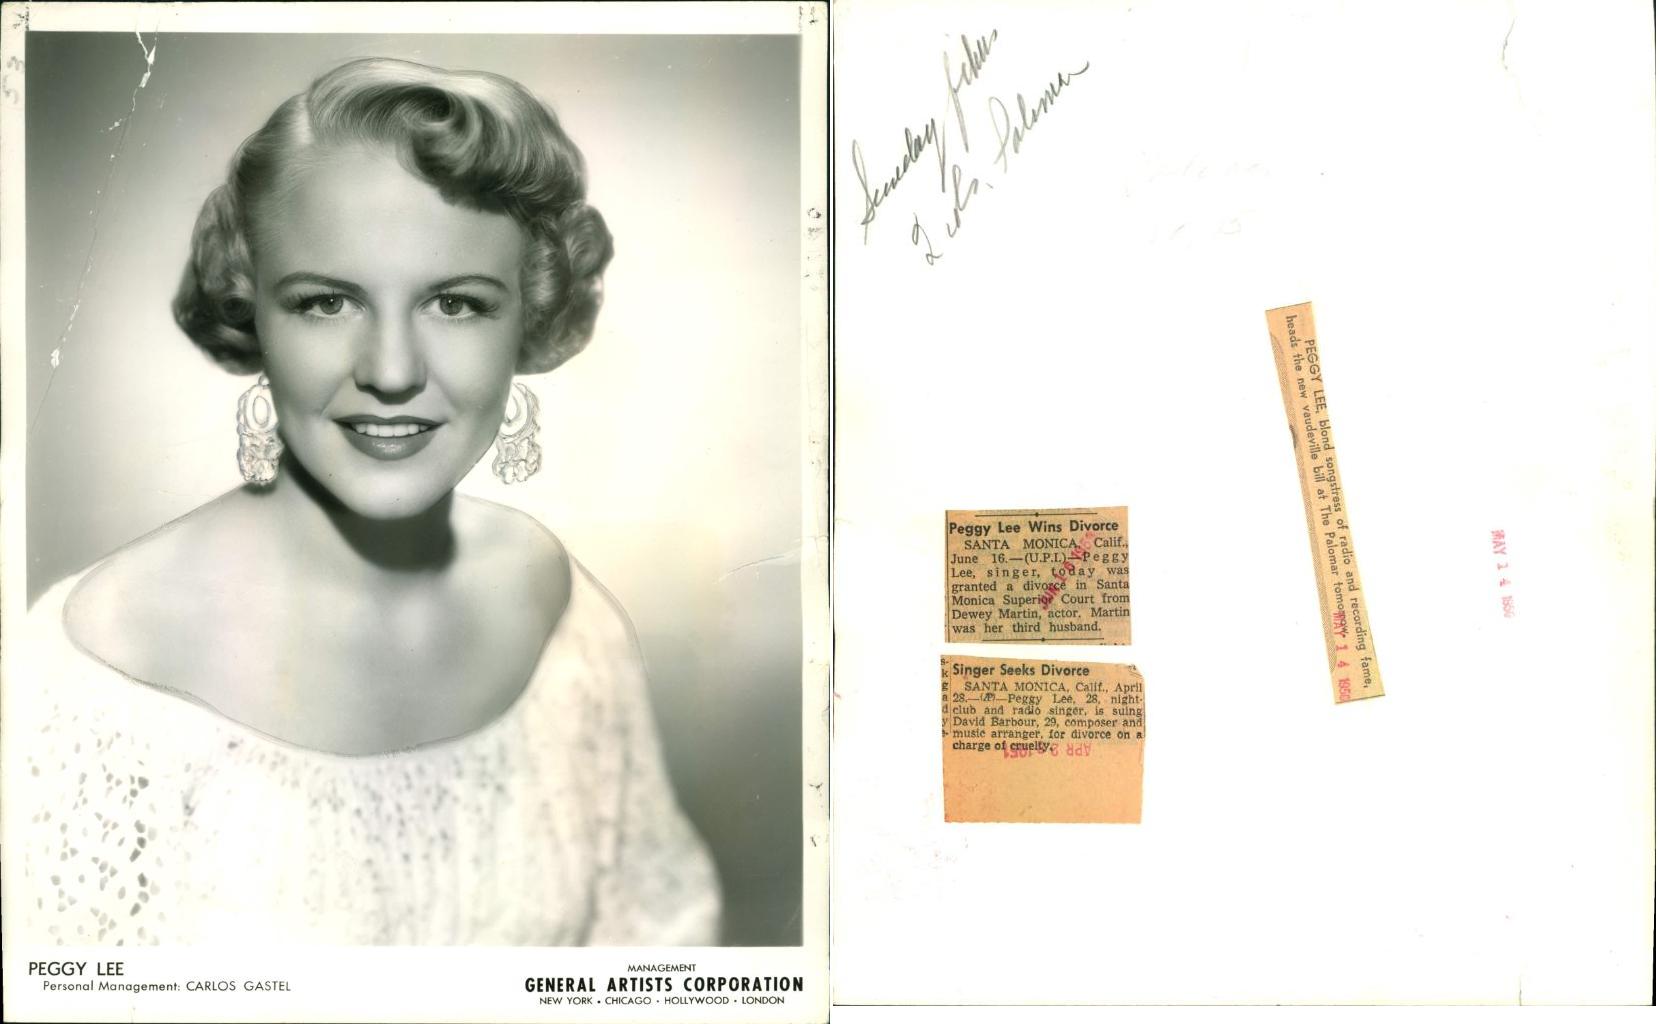 PEGGY LEE
Personal Management: CARLOS GASTEL
MANAGEMENT
GENERAL ARTISTS CORPORATION
NEW YORK • CHICAGO • HOLLYWOOD • LONDON
53
Sunday
2 cols. Palomar
PEGGY LEE, blond songstress of radio and recording fame,
heads the new vaudeville bill at The Palomar tomorrow.
MAY 14 1950
MAY 14 1950
Peggy Lee Wins Divorce
SANTA MONICA, Calif.,
June 16.—(U.P.I.)—Peggy
Lee, singer, today was
granted a divorce in Santa
Monica Superior Court from
Dewey Martin, actor. Martin
was her third husband.
s-
k
g
a
d
y
e-
Singer Seeks Divorce
SANTA MONICA, Calif., April
28.—(AP)—Peggy Lee, 28, night-
club and radio singer, is suing
David Barbour, 29, composer and
music arranger, for divorce on a
charge of cruelty.
APR 28 1951